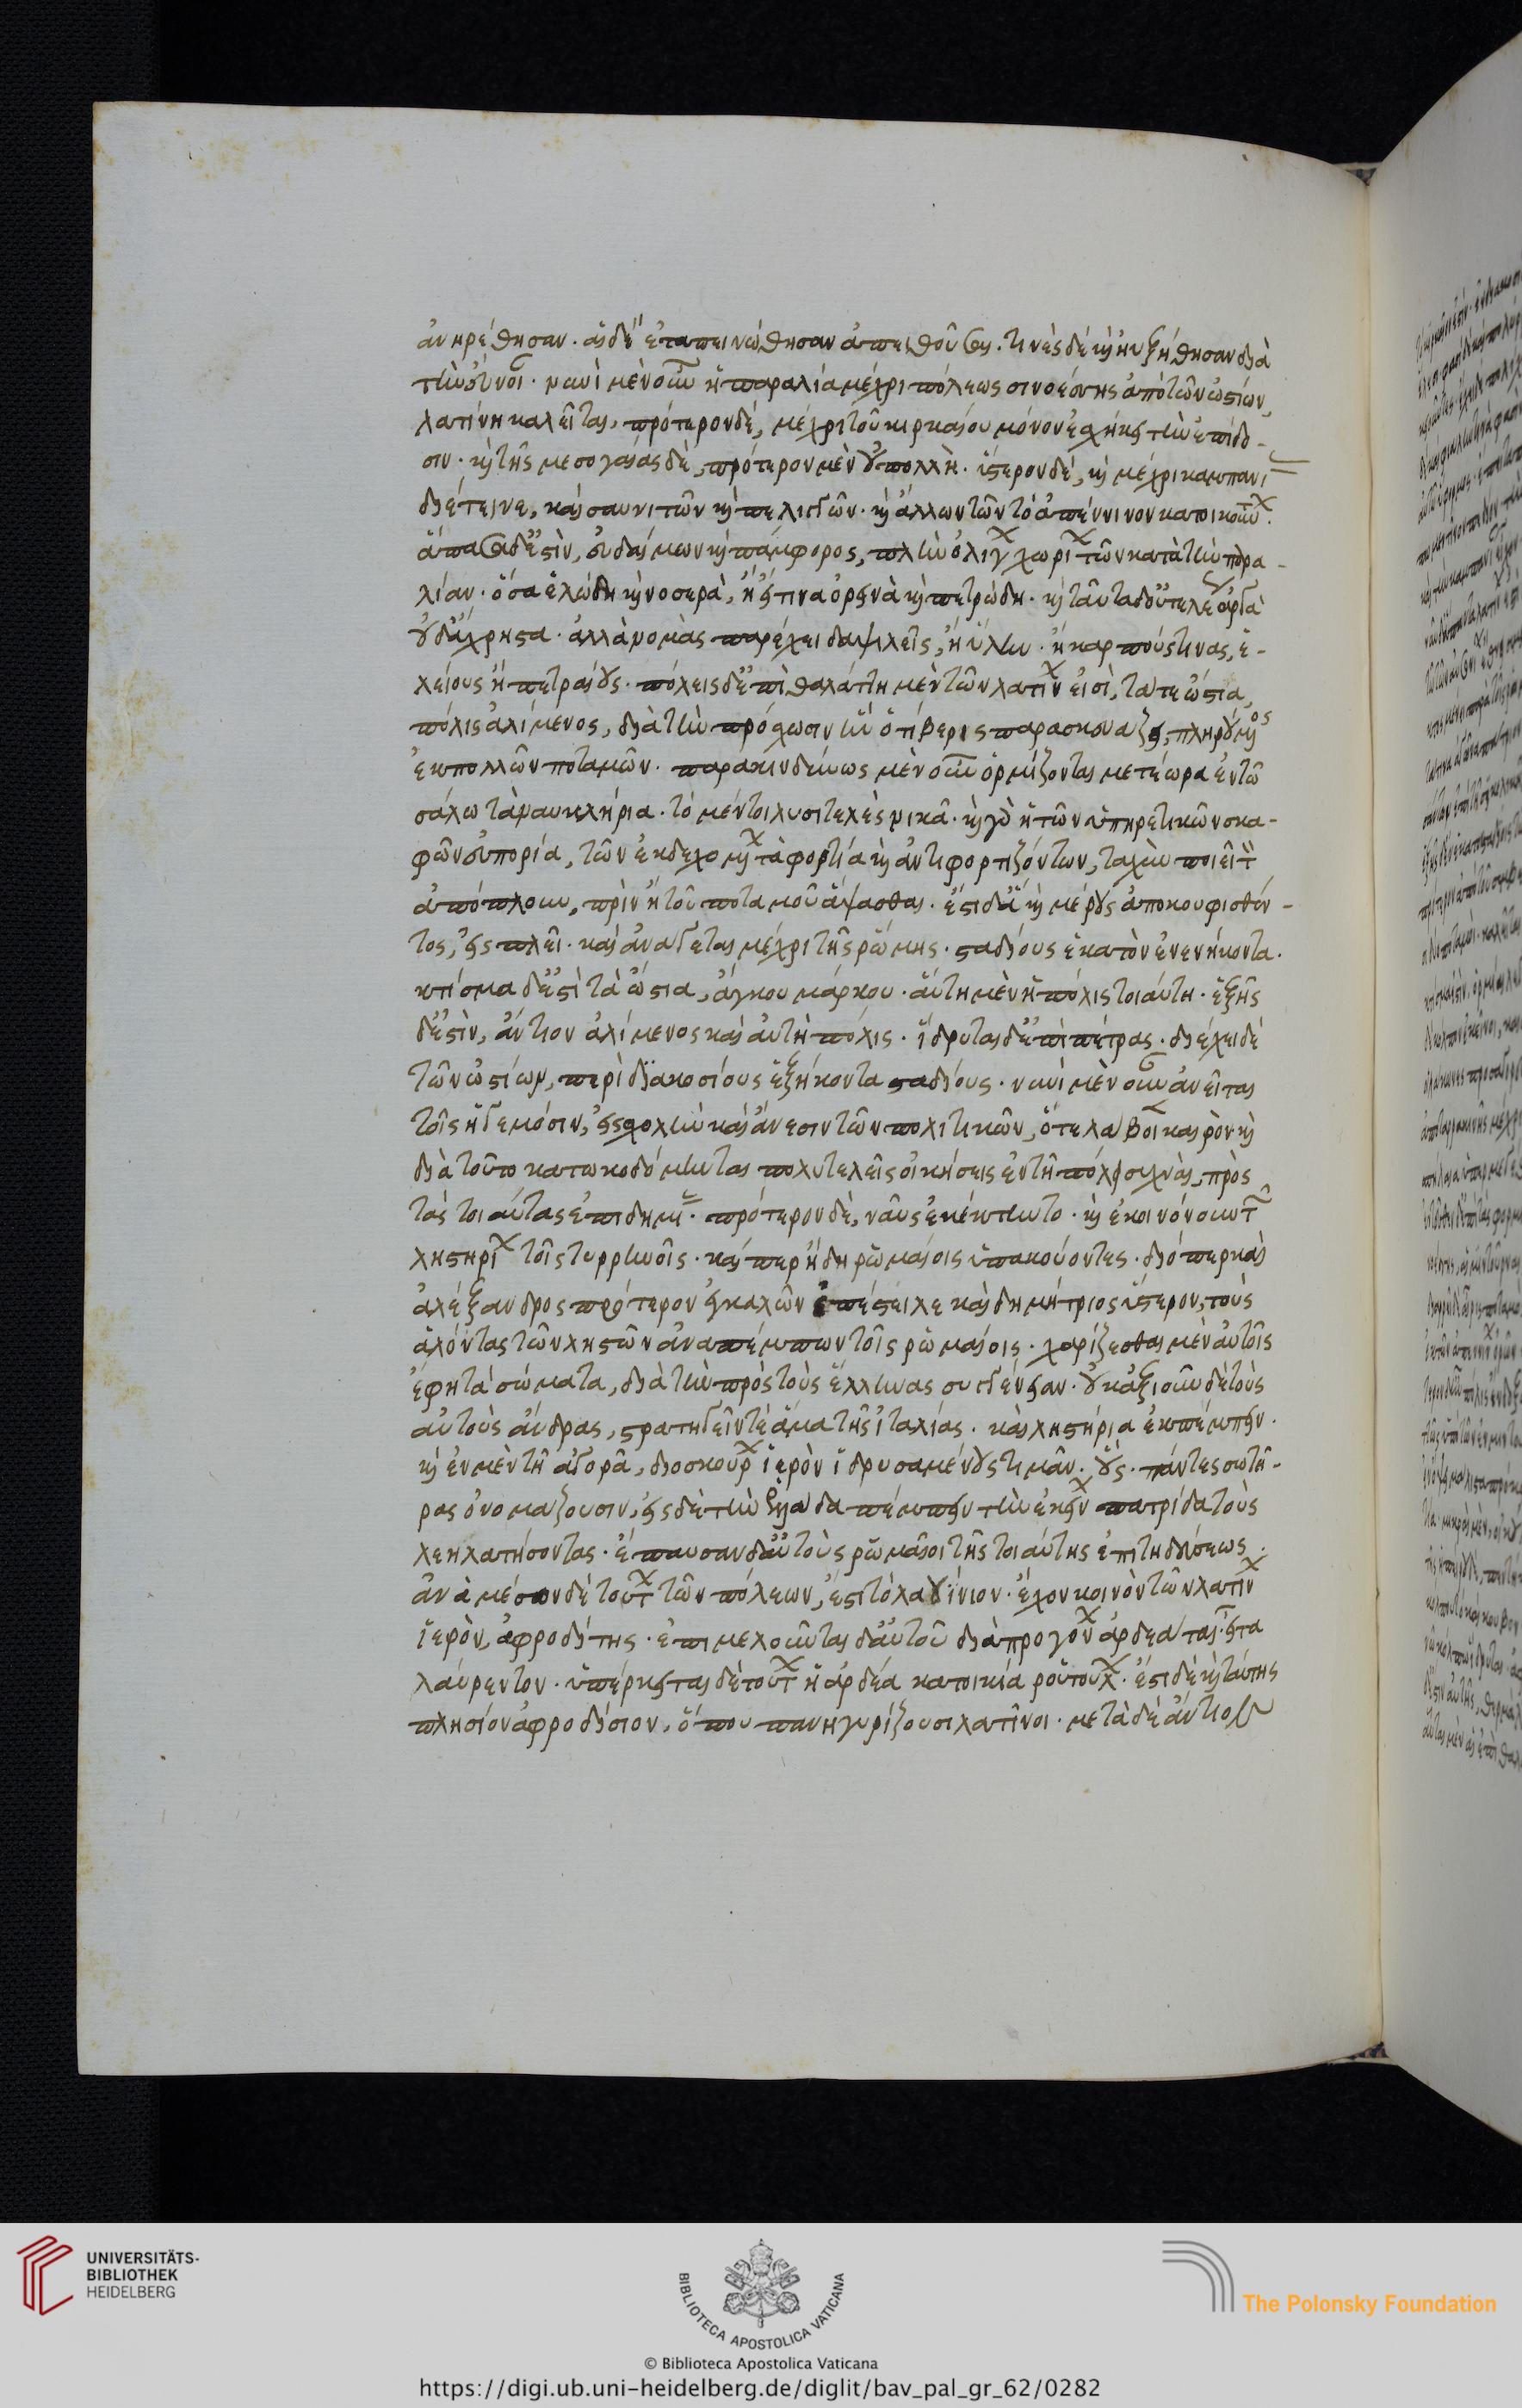 ἀνῃρέθησαν. αἱ δ' ἐταπεινώθησαν ἀπειθοῦσαι. τινὲς δὲ καὶ ηὐξήθησαν διὰ
τὴν εὔνοι. νυνὶ μὲν οὖν ἡ παραλία μέχρι πόλεως σινοέσσης ἀπὸ τῶν ὠστίων,
λατίνη καλεῖται, πρότερον δὲ, μέχρι τοῦ κιρκαίου μόνον ἐσχήκει τὴν ἐπίδο-
σιν. καὶ τῆς μεσογαίας δὲ, πρότερον μὲν οὐ πολλὴ. ὕστερον δὲ, καὶ μέχρι καμπανί
διέτεινε, καὶ σαυνιτῶν καὶ πελιγνῶν. καὶ ἄλλων τῶν τὸ ἀπέννινον κατοικούντ.
ἅπασα δ' ἐστὶν, εὐδαίμων καὶ πάμφορος, πλὴν ὀλίγ χωρί τῶν κατὰ τὴν παρα-
λίαν. ὅσα ἑλώδη καὶ νοσερὰ, ἢ εἴ τινα ὀρεινὰ καὶ πετρώδη. καὶ ταῦτα δ' οὐ τελέ ἀργὰ
οὐδ' ἄχρηστα. ἀλλὰ νομὰς παρέχει δαψιλεῖς, ἢ ὕλην. ἢ καρπούς τινας, ἑ-
λείους ἢ πετραίους. πόλεις δ' ἐπὶ θαλάττη μὲν τῶν λατίν εἰσὶ, τά τε ὤστια,
πόλις ἀλίμενος, διὰ τὴν πρόσχωσιν ἣν ὁ τίβερις παρασκευάζει, πληρούμενος
ἐκ πολλῶν ποταμῶν. παρακινδύνως μὲν οὖν ὁρμίζονται μετέωρα ἐν τῶ
σάλω τὰ ναυκλήρια. τὸ μέντοι λυσιτελὲς νικᾶ. καὶ γὰρ ἡ τῶν ὑπηρετικῶν σκα-
φῶν εὐπορία, τῶν ἐκδεχομέν τὰ φορτία καὶ ἀντιφορτιζόντων, ταχὺν ποιεῖ τ
ἀπόπλουν, πρὶν ἢ τοῦ ποταμοῦ ἅψασθαι. ἔστι δ' ἃ καὶ μέρους ἀποκουφισθέν-
τος, εἰσπλεῖ. καὶ ἀνάγεται μέχρι τῆς ῥώμης. σταδίους ἑκατὸν ἐνενήκοντα.
κτίσμα δ' ἐστὶ τὰ ὤστια, ἄγκου μάρκου. αὕτη μὲν ἡ πόλις τοιαύτη. ἑξῆς
δ' ἐστὶν, ἄντιον ἀλίμενος καὶ αὐτὴ πόλις. ἵδρυται δ' ἐπὶ πέτραις. διέχει δὲ
τῶν ὠστίων, περὶ διακοσίους ἑξήκοντα σταδίους. νυνὶ μὲν οὖν ἀνεῖται
τοῖς ἡγεμόσιν, εἰς σχολὴν καὶ ἄνεσιν τῶν πολιτικῶν, ὅτε λάβοι καιρὸν καὶ
διὰ τοῦτο κατωκοδόμηνται πολυτελεῖς οἰκήσεις ἐν τῆ πόλει συχναὶ, πρὸς
τὰς τοιαύτας ἐπιδημί. πρότερον δὲ, ναῦς ἐκέκτηντο. καὶ ἐκοινόνουν τ
ληστηρί τοῖς τυρρηνοῖς. καίπερ ἤδη ῥωμαίοις ὑπακούοντες. διόπερ καὶ
ἀλέξανδρος πρότερον ἐγκαλῶν ἐπέστειλε καὶ δημήτριος ὕστερον, τοὺς
ἁλόντας τῶν ληστῶν ἀναπέμπων τοῖς ῥωμαίοις. χαρίζεσθαι μὲν αὐτοῖς
ἔφη τὰ σώματα, διὰ τὴν πρὸς τοὺς ἕλληνας συγγένειαν. οὐκ ἀξιοῦν δὲ τοὺς
αὐτοὺς ἄνδρας, στρατηγεῖν τὲ ἅμα τῆς ἰταλίας. καὶ ληστήρια ἐκπέμπειν.
καὶ ἐν μὲν τῆ ἀγορᾶ, διοσκούρ ἱερὸν ἱδρυσαμένους τιμᾶν. οὓς πάντες σωτῆ-
ρας ὀνομάζουσιν, εἰς δὲ τὴν ἑλλάδα πέμπειν τὴν ἐκείν πατρίδα τοὺς
λεηλατήσοντας. ἔπαυσαν δ' αὐτοὺς ῥωμαῖοι τῆς τοιαύτης ἐπιτηδεύσεως.
ἀνὰ μέσον δὲ τούτ τῶν πόλεων, ἐστὶ τὸ λαουίνιον. ἔχον κοινὸν τῶν λατίν
ἱερὸν, ἀφροδίτης. ἐπιμελοῦνται δ' αὐτοῦ διὰ προγόν ἀρδεάται, εἶτα
λαύρεντον. ὑπέρκειται δὲ τούτ ἡ ἀρδέα κατοικία ῥουτούλ. ἔστι δὲ καὶ ταύτης
πλησίον ἀφροδίσιον, ὅπου πανηγυρίζουσι λατῖνοι. μετὰ δὲ ἄντιον
UNIVERSITÄTS-
BIBLIOTHEK
HEIDELBERG
BIBLIOTECA APOSTOLICA VATICANA
The Polonsky Foundation
© Biblioteca Apostolica Vaticana
https://digi.ub.uni-heidelberg.de/diglit/bav_pal_gr_62/0282